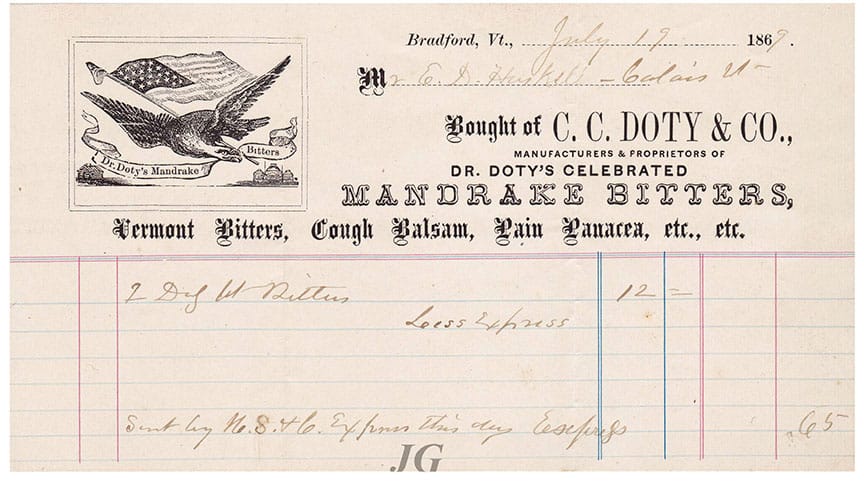 Bradford, Vt., July 19 1869.
Mr E. D. Huskell - Calais Vt
Bought of C. C. DOTY & CO.,
MANUFACTURERS & PROPRIETORS OF
DR. DOTY'S CELEBRATED
MANDRAKE BITTERS,
Dr. Doty's Mandrake Bitters
Vermont Bitters, Cough Balsam, Pain Panacea, etc., etc.
2 Doz Vt Bitters 12 =
Less Express
Sent by U. S. & C. Express this day .65
JG